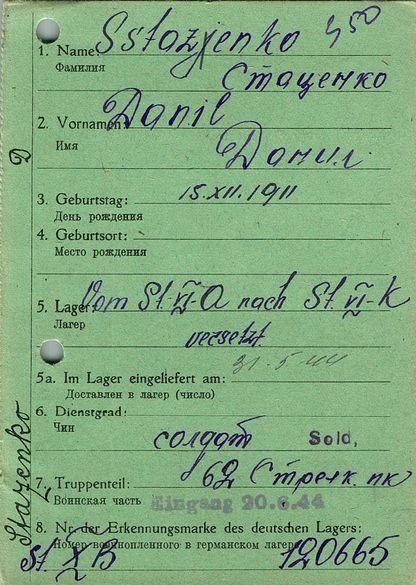 1. Name: Sstazjenko 450
Фамилия
Стаценко
2. Vornamen: Danil
Имя
Данил
3. Geburtstag: 15.XII.1911
День рождения
4. Geburtsort:
Место рождения
5. Lager: Vom St. VI-A nach St. VI-K
Лагер
versetzt.
31.5.44
5a. Im Lager eingeliefert am:
Доставлен в лагер (число)
6. Dienstgrad:
Чин
солдат Sold,
7. Truppenteil: 62 Стрелк. пк
Воинская часть Eingang 20.6.44
8. Nr. der Erkennungsmarke des deutschen Lagers:
Номер военнопленного в германском лагере
St. X B 120665
D
Stazenko